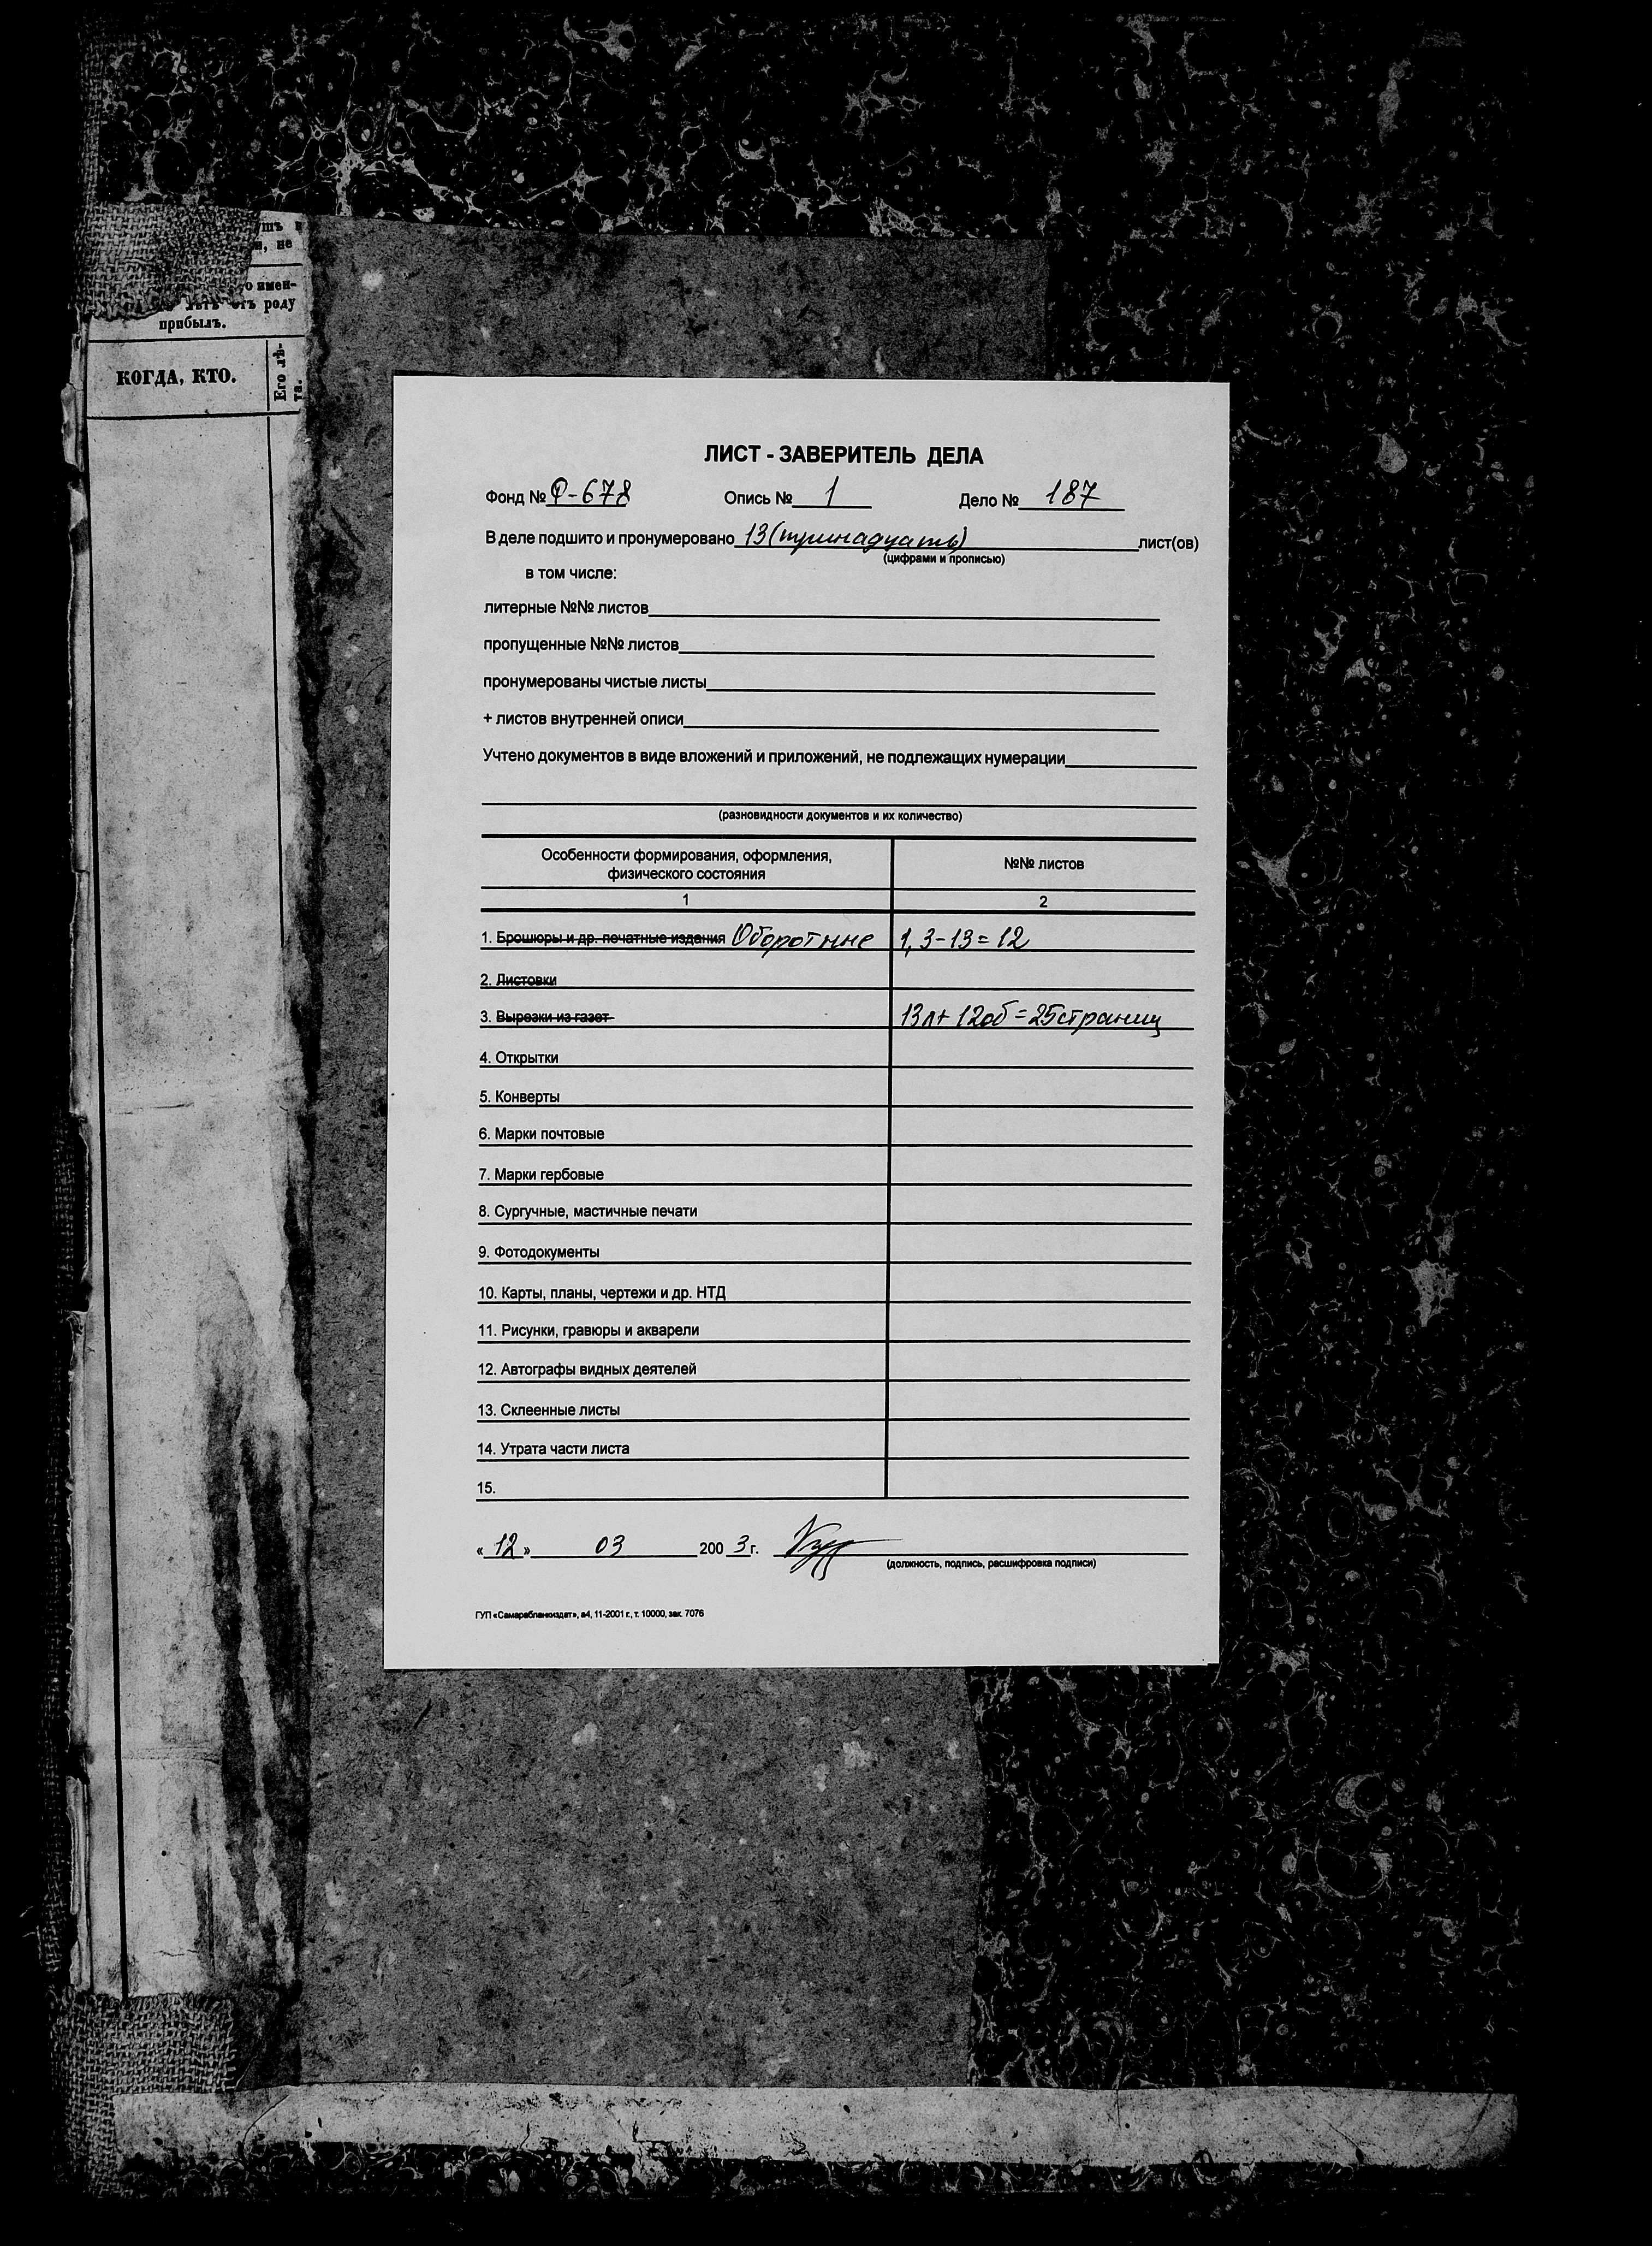 ушъ и
и, не
о имен-
лѣтъ отъ роду
прибылъ.
КОГДА, КТО.
Его лѣ-
та.
ЛИСТ - ЗАВЕРИТЕЛЬ ДЕЛА
Фонд № Ф-678 Опись № 1 Дело № 187
В деле подшито и пронумеровано 13 (тринадцать) лист(ов)
(цифрами и прописью)
в том числе:
литерные №№ листов
пропущенные №№ листов
пронумерованы чистые листы
+ листов внутренней описи
Учтено документов в виде вложений и приложений, не подлежащих нумерации
(разновидности документов и их количество)
Особенности формирования, оформления,
физического состояния
№№ листов
1 2
1. Брошюры и др. печатные издания Оборотные 1, 3-13 = 12
2. Листовки
3. Вырезки из газет 13л + 12об = 25 страниц
4. Открытки
5. Конверты
6. Марки почтовые
7. Марки гербовые
8. Сургучные, мастичные печати
9. Фотодокументы
10. Карты, планы, чертежи и др. НТД
11. Рисунки, гравюры и акварели
12. Автографы видных деятелей
13. Склеенные листы
14. Утрата части листа
15.
« 12 » 03 200 3 г.
(должность, подпись, расшифровка подписи)
ГУП «Самарабланкиздат», а4, 11-2001 г., т. 10000, зак. 7076